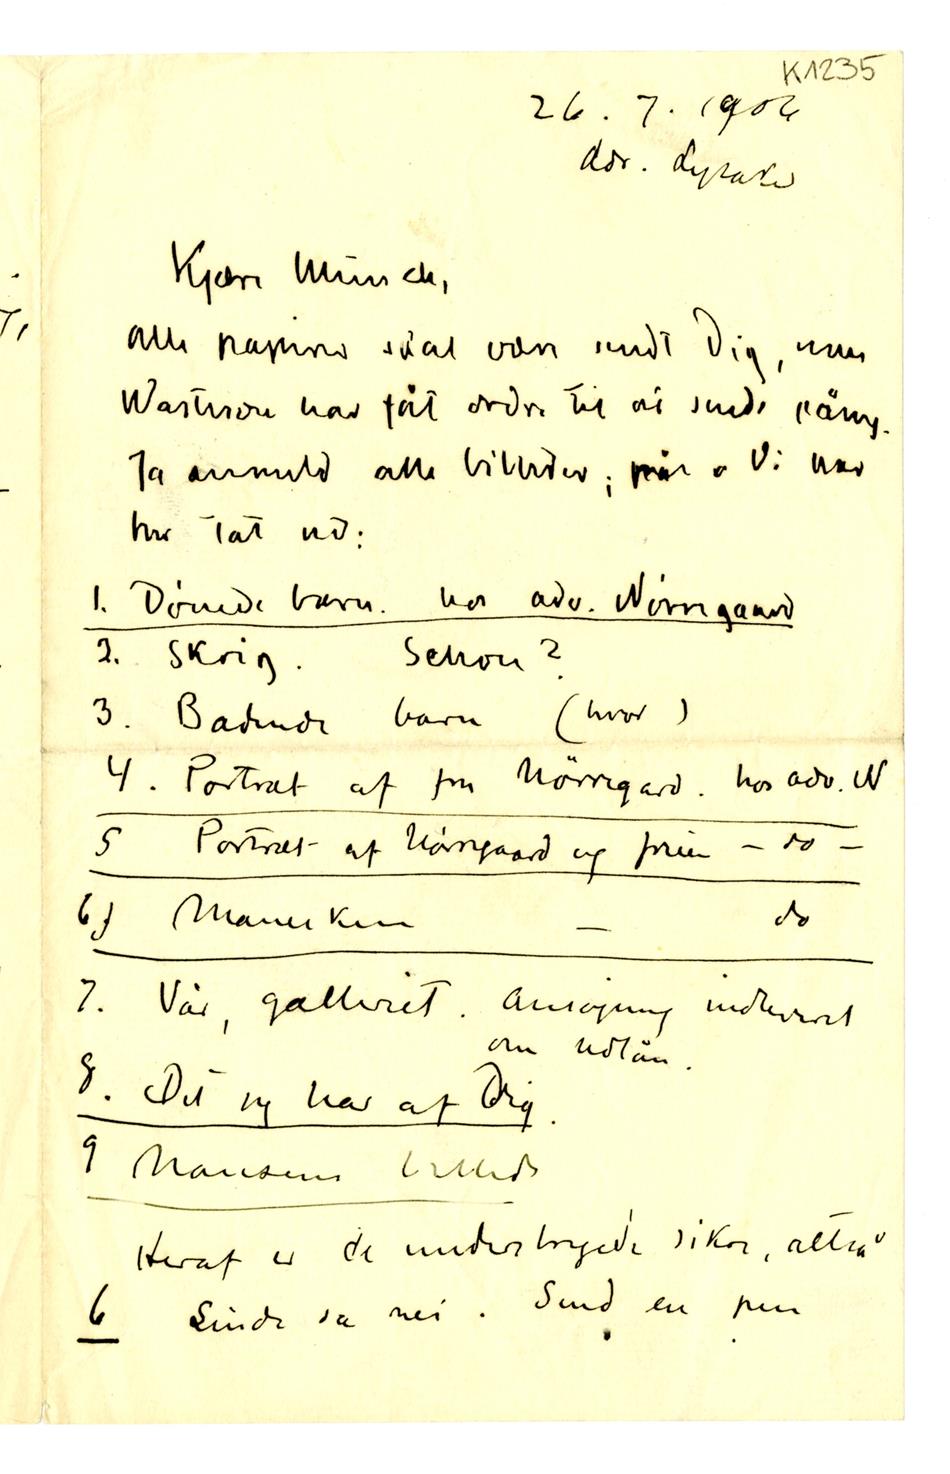 K1235
26. 7. 1906
Adr. Lysaker
Kjære Munch,
alle papirer skal være sendt Dig, men
har fåt ordre til at sende
Ja anmeld alle billeder; Vi har
her tat ud:
1. Døende barn. hos adv. Nörregaard
2. Skrig. Schou?
3. Badende barn (hvor)
4. Portræt af fru Nörregard. hos adv. N
5 Portræt af Nörregaard og frue – do –
6) – do
7. Vår, galleriet. Ansøgning indleveret
om udlån.
8. Det jeg har af Dig.
9 Nansens billede
Heraf er de understregede sikre, altså
6 Linde sa nei. Send en pen